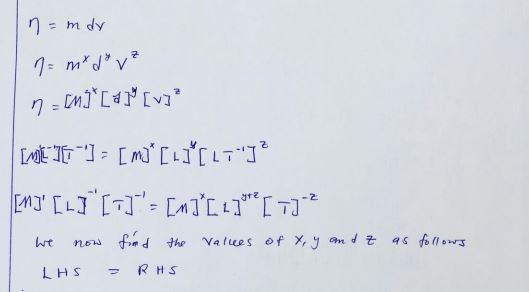 η = m dv
η = m^x d^y v^z
η = [M]^x [d]^y [v]^z
[M][L^-1][T^-1] = [M]^x [L]^y [LT^-1]^z
[M]^1 [L]^-1 [T]^-1 = [M]^x [L]^y+z [T]^-z
We now find the values of x, y and z as follows
LHS = RHS